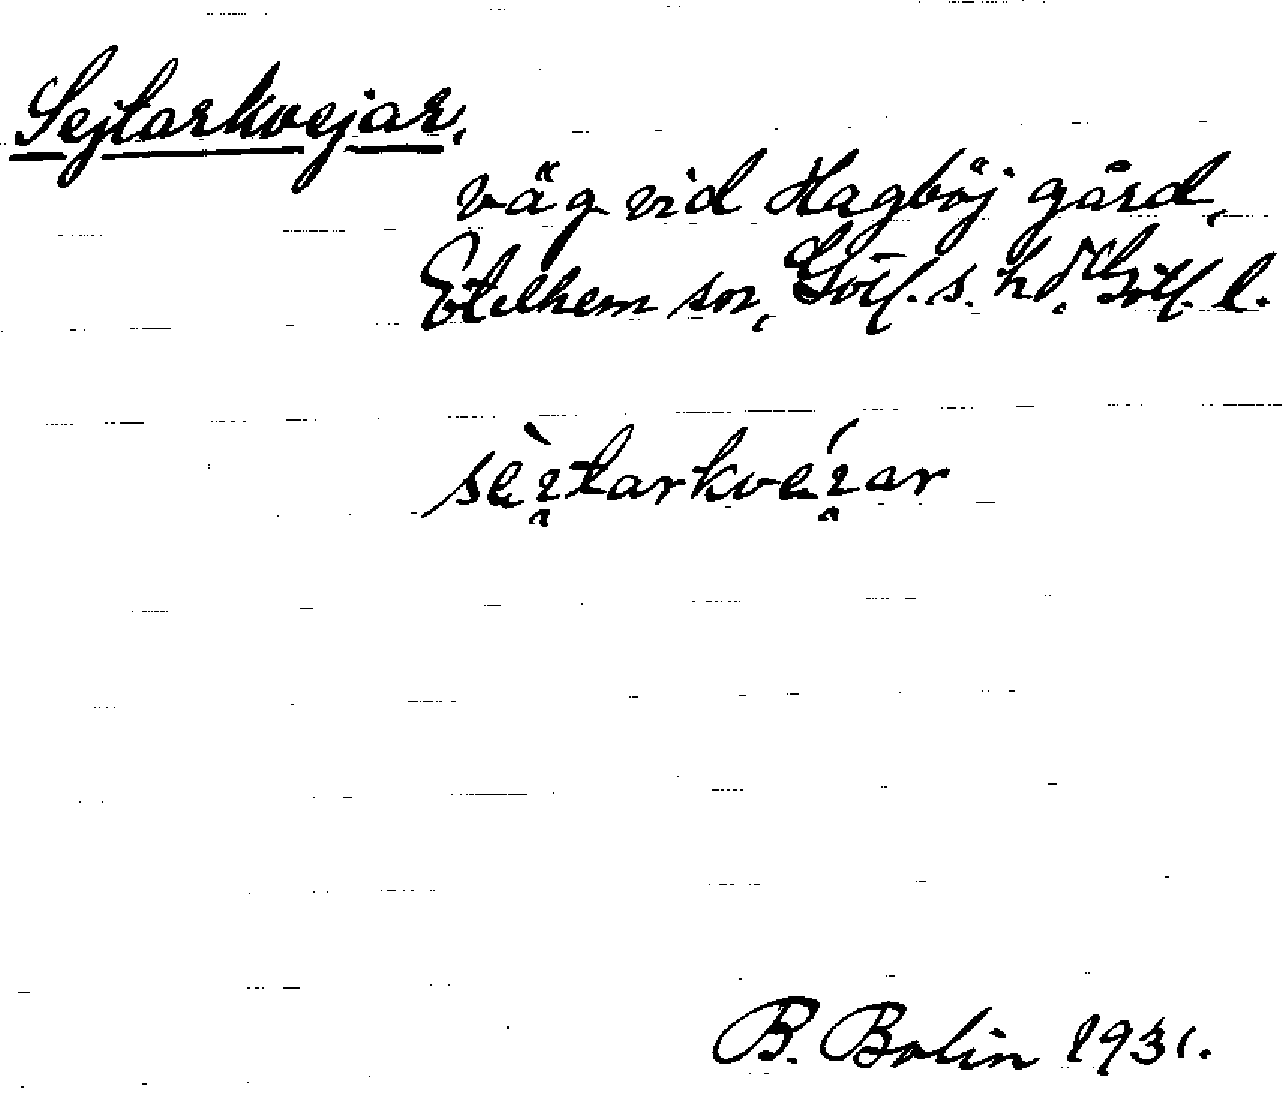 Sejtarkvejar,
väg vid Hagböj gård,
Etelhem sn, Gotl. s. hd. Gotl. l.
sèɪ̯tarkvéɪ̯ar
B. Bolin 1931.